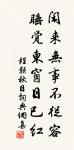 闲来无事不从容
睡觉东窗日已红
程颢秋日词典网集